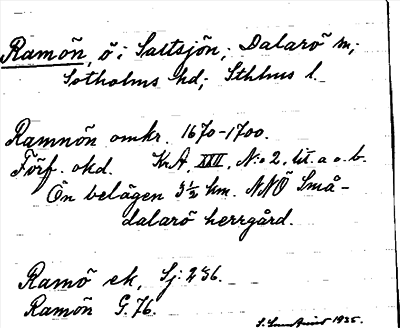 Ramön, ö i Saltsjön; Dalarö sn;
Sotholms hd; Sthlms l.
Ramnön omkr. 1670-1700.
Förf. okd. KrA, XXII, N:o 2, lit. a o. b.
Ön belägen 3 1/2 km. NNÖ Små-
dalarö herrgård.
Ramö ek, Sj: 236.
Ramön G. 76.
1935.